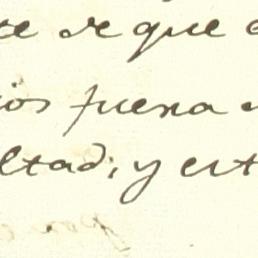 te de que
ios fuera
ltad; y est